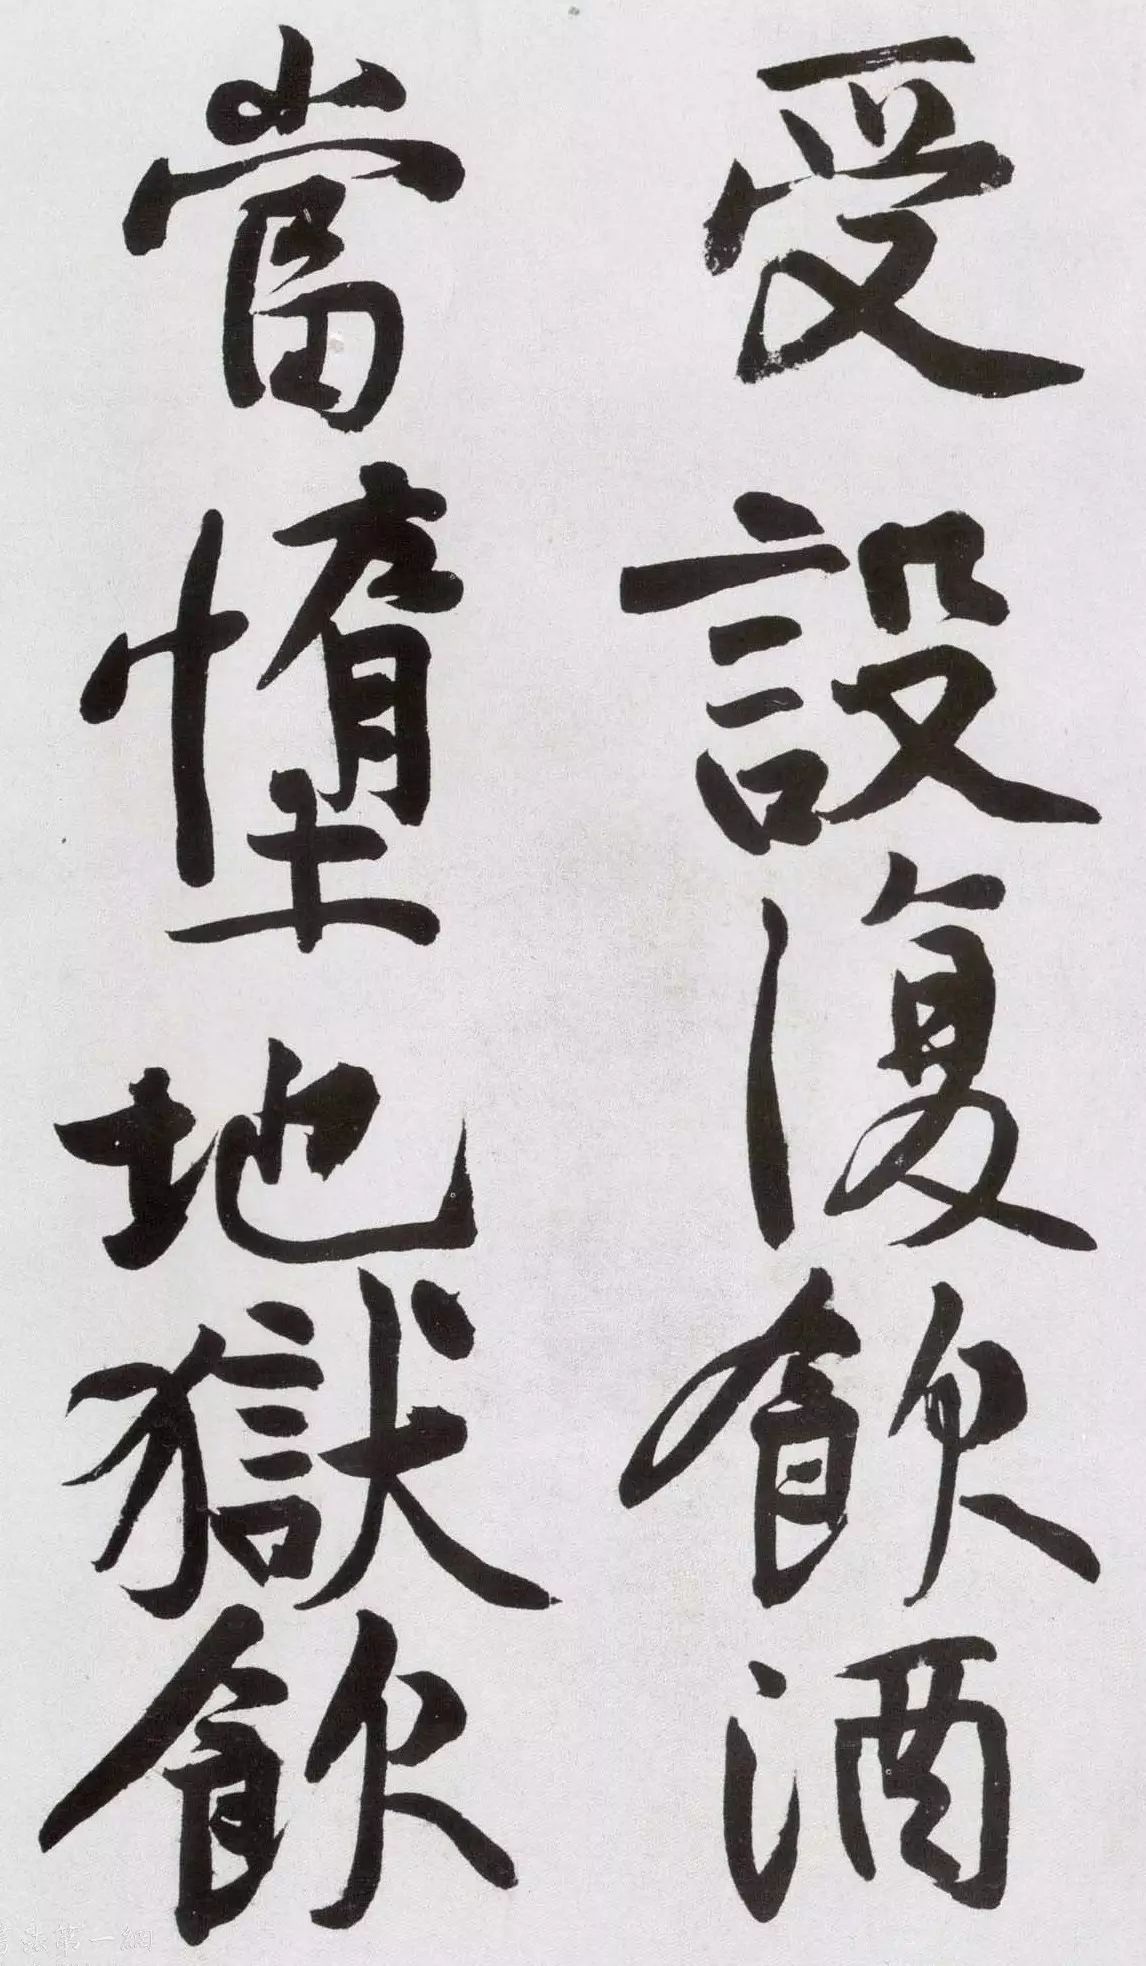 受設復飲酒
當墮地獄飲
書法第一網